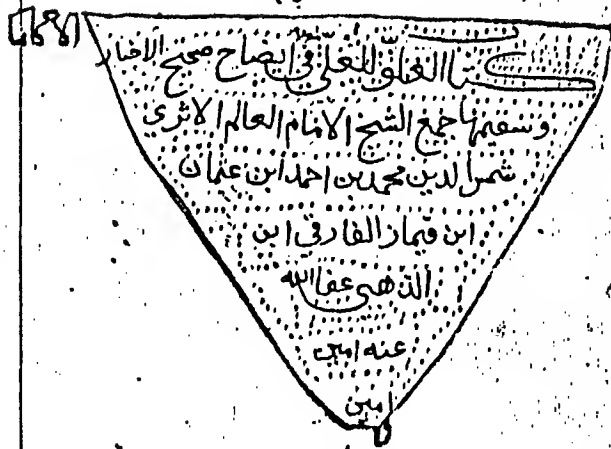 كتاب العلوّ للعليّ في ايضاح صحيح الاخبار
وسقيمها جمع الشيخ الامام العالم الاثري
شمس الدين محمد بن احمد ابن عثمان
ابن قيماز الفارقي ابن
الذهبي عفا الله
عنه امين
امين